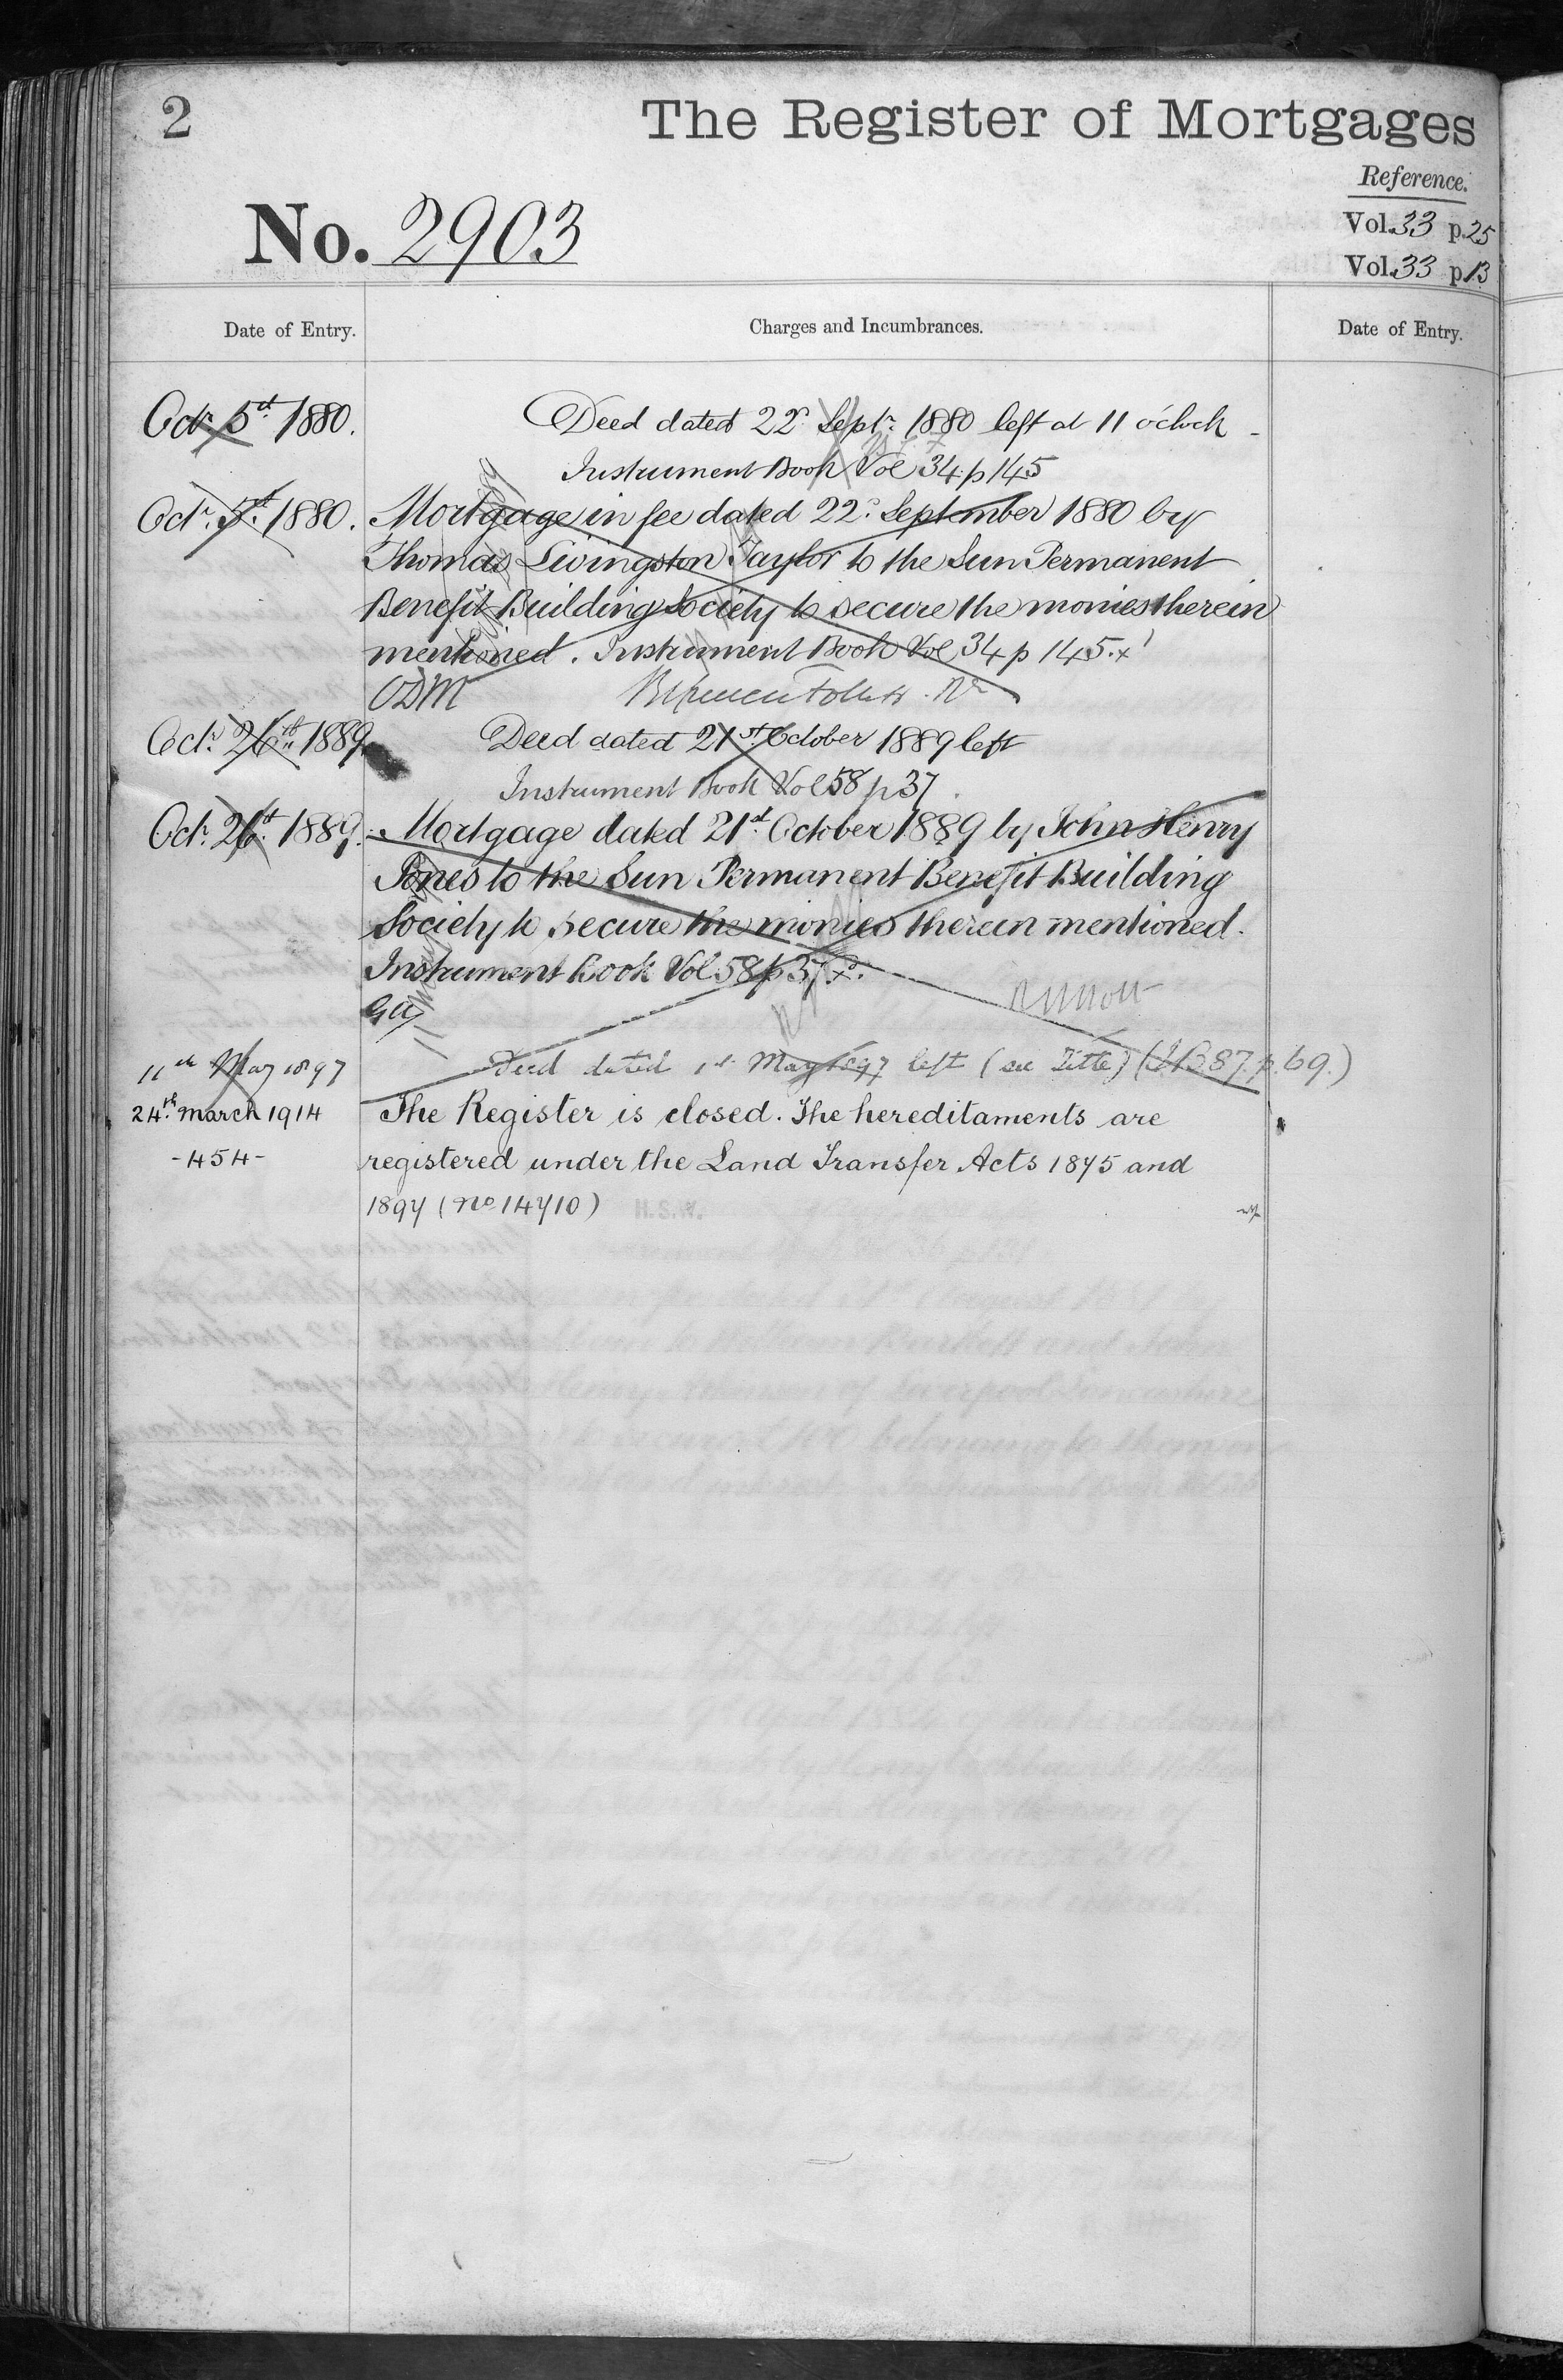 2
The Register of Mortgages
Reference.
No. 2903
Vol. 33 p. 25
Vol. 33 p. 13
Date of Entry.
Charges and Incumbrances.
Date of Entry.
Octr. 5th 1880.
Deed dated 22d. Septr. 1880 left at 11 o'clock
Instrument Book Vol 34 p 145
Octr. 5th. 1880.
Mortgage in fee dated 22d. September 1880 by
Thomas Livingston Taylor to the Sun Permanent
Benefit Building Society to secure the monies therein
mentioned. Instrument Book Vol 34 p 145. x
ODM
Octr. 26th 1889
Deed dated 21st October 1889 left
Instrument Book Vol 58 p 37.
Octr. 26th. 1889.
Mortgage dated 21st. October 1889 by John Henry
Jones to the Sun Permanent Benefit Building
Society to secure the monies therein mentioned.
Instrument Book Vol 58 p 37 x
11th May 1897
Deed dated 1st May 1897 left (see Title) (I B 87. p. 69.)
24th. March 1914
The Register is closed. The hereditaments are
-454-
registered under the Land Transfer Acts 1875 and
1897 (No 14710)
H.S.W.